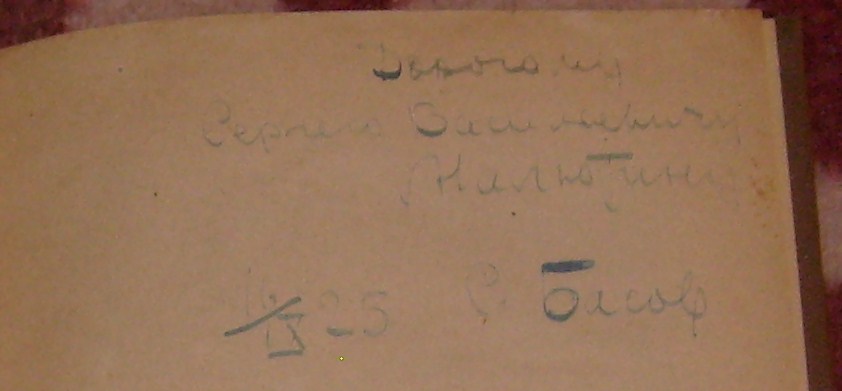 Дорогому
Сергею Васильевичу
Малютину
16/IX 25 С.